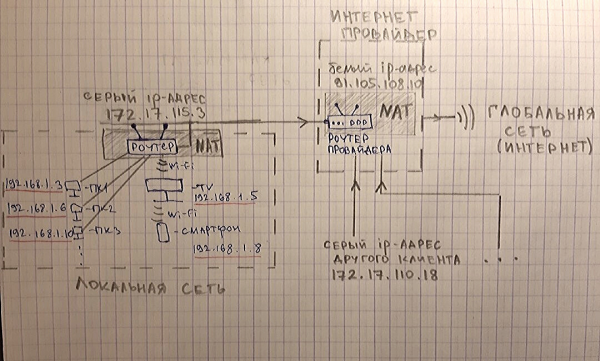 ИНТЕРНЕТ
ПРОВАЙДЕР
белый ip-адрес
91.105.108.10
NAT
... РОР
РОУТЕР
ПРОВАЙДЕРА
ГЛОБАЛЬНАЯ
СЕТЬ
(ИНТЕРНЕТ)
СЕРЫЙ ip-АДРЕС
172.17.115.3
РОУТЕР
NAT
Wi-Fi
192.168.1.3 -ПК1
-TV
192.168.1.5
192.168.1.6 -ПК2
Wi-Fi
192.168.1.10 -ПК3
-СМАРТФОН
192.168.1.8
ЛОКАЛЬНАЯ СЕТЬ
СЕРЫЙ ip-АДРЕС
ДРУГОГО КЛИЕНТА
172.17.110.18
...